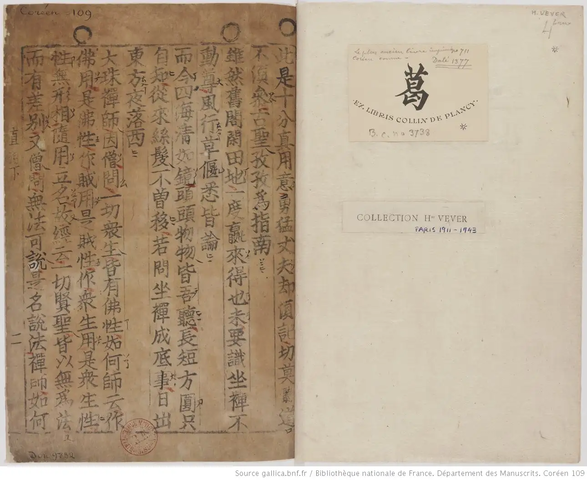 Coréen 109
此是十分真用意勇猛丈夫却須記切莫道
不須參古聖孜孜為指南
雖然舊閣閑田地一度贏來得也未要識坐禪不
動尊風行草偃悉皆論
而今四海清如鏡頭頭物物皆吾聽長短方圓只
自知從來絲髮不曾移若問坐禪成底事日出
東方夜落西
大珠禪師因僧問一切衆生皆有佛性如何師云作
佛用是佛性作賊用是賊性作衆生用是衆生性
性無形相隨用立名故經云一切賢聖皆以無為法
而有差別又僧問無法可說是名說法禪師如何
直 下
二
H. VEVER
Date 1377
葛
EX. LIBRIS COLLIN DE PLANCY.
COLLECTION Hri VEVER
PARIS 1911 - 1943
Source gallica.bnf.fr / Bibliothèque nationale de France. Département des Manuscrits. Coréen 109